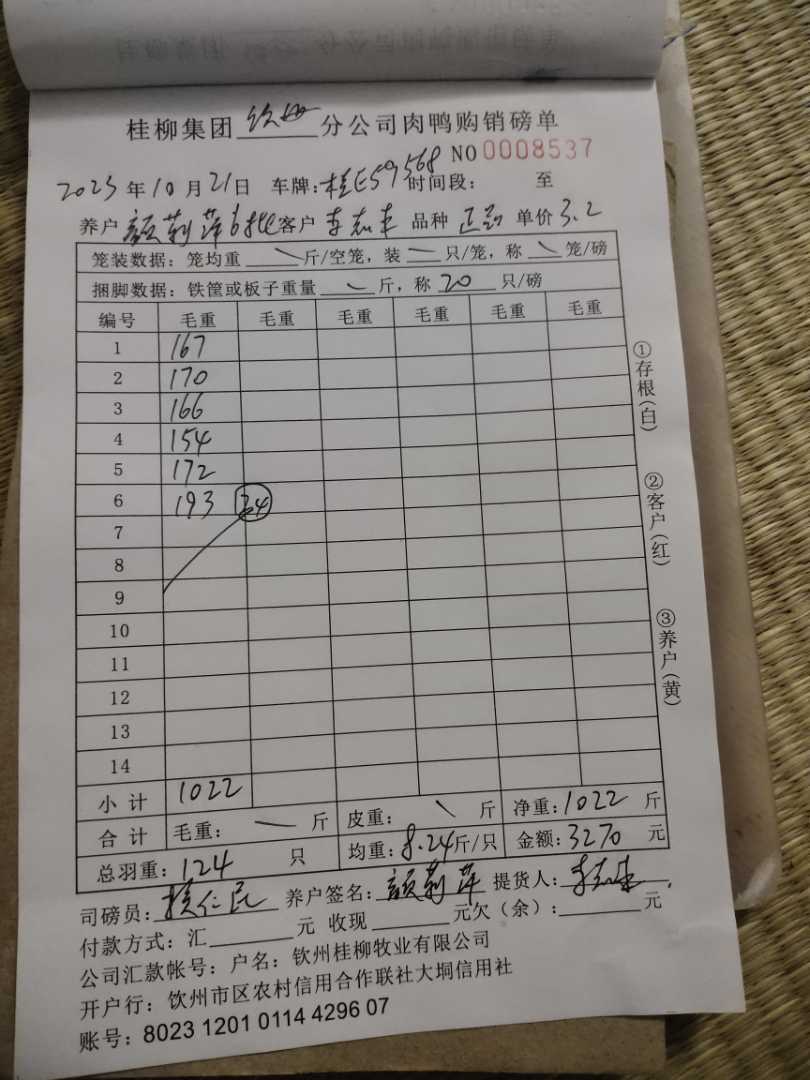 桂柳集团 钦州 分公司肉鸭购销磅单
NO 0008537
2023 年 10 月 21 日 车牌：桂E59568 时间段： 至
养户 颜莉萍 客户 李志丰 品种 单价 3.2
笼装数据：笼均重 \ 斤/空笼，装 一 只/笼，称 \ 笼/磅
捆脚数据：铁筐或板子重量 \ 斤，称 20 只/磅
编号 毛重 毛重 毛重 毛重 毛重 毛重
1 167
2 170
3 166
4 154
5 172
6 193 24
7
8
9
10
11
12
13
14
小计 1022
合计 毛重： 一 斤 皮重： \ 斤 净重：1022 斤
总羽重：124 只 均重：8.24斤/只 金额：3270 元
司磅员： 仁民 养户签名：颜莉萍 提货人：李志丰
付款方式：汇 元 收现 元欠（余）： 元
公司汇款帐号：户名：钦州桂柳牧业有限公司
开户行：钦州市区农村信用合作联社大垌信用社
账号：8023 1201 0114 4296 07
①存根（白）
②客户（红）
③养户（黄）